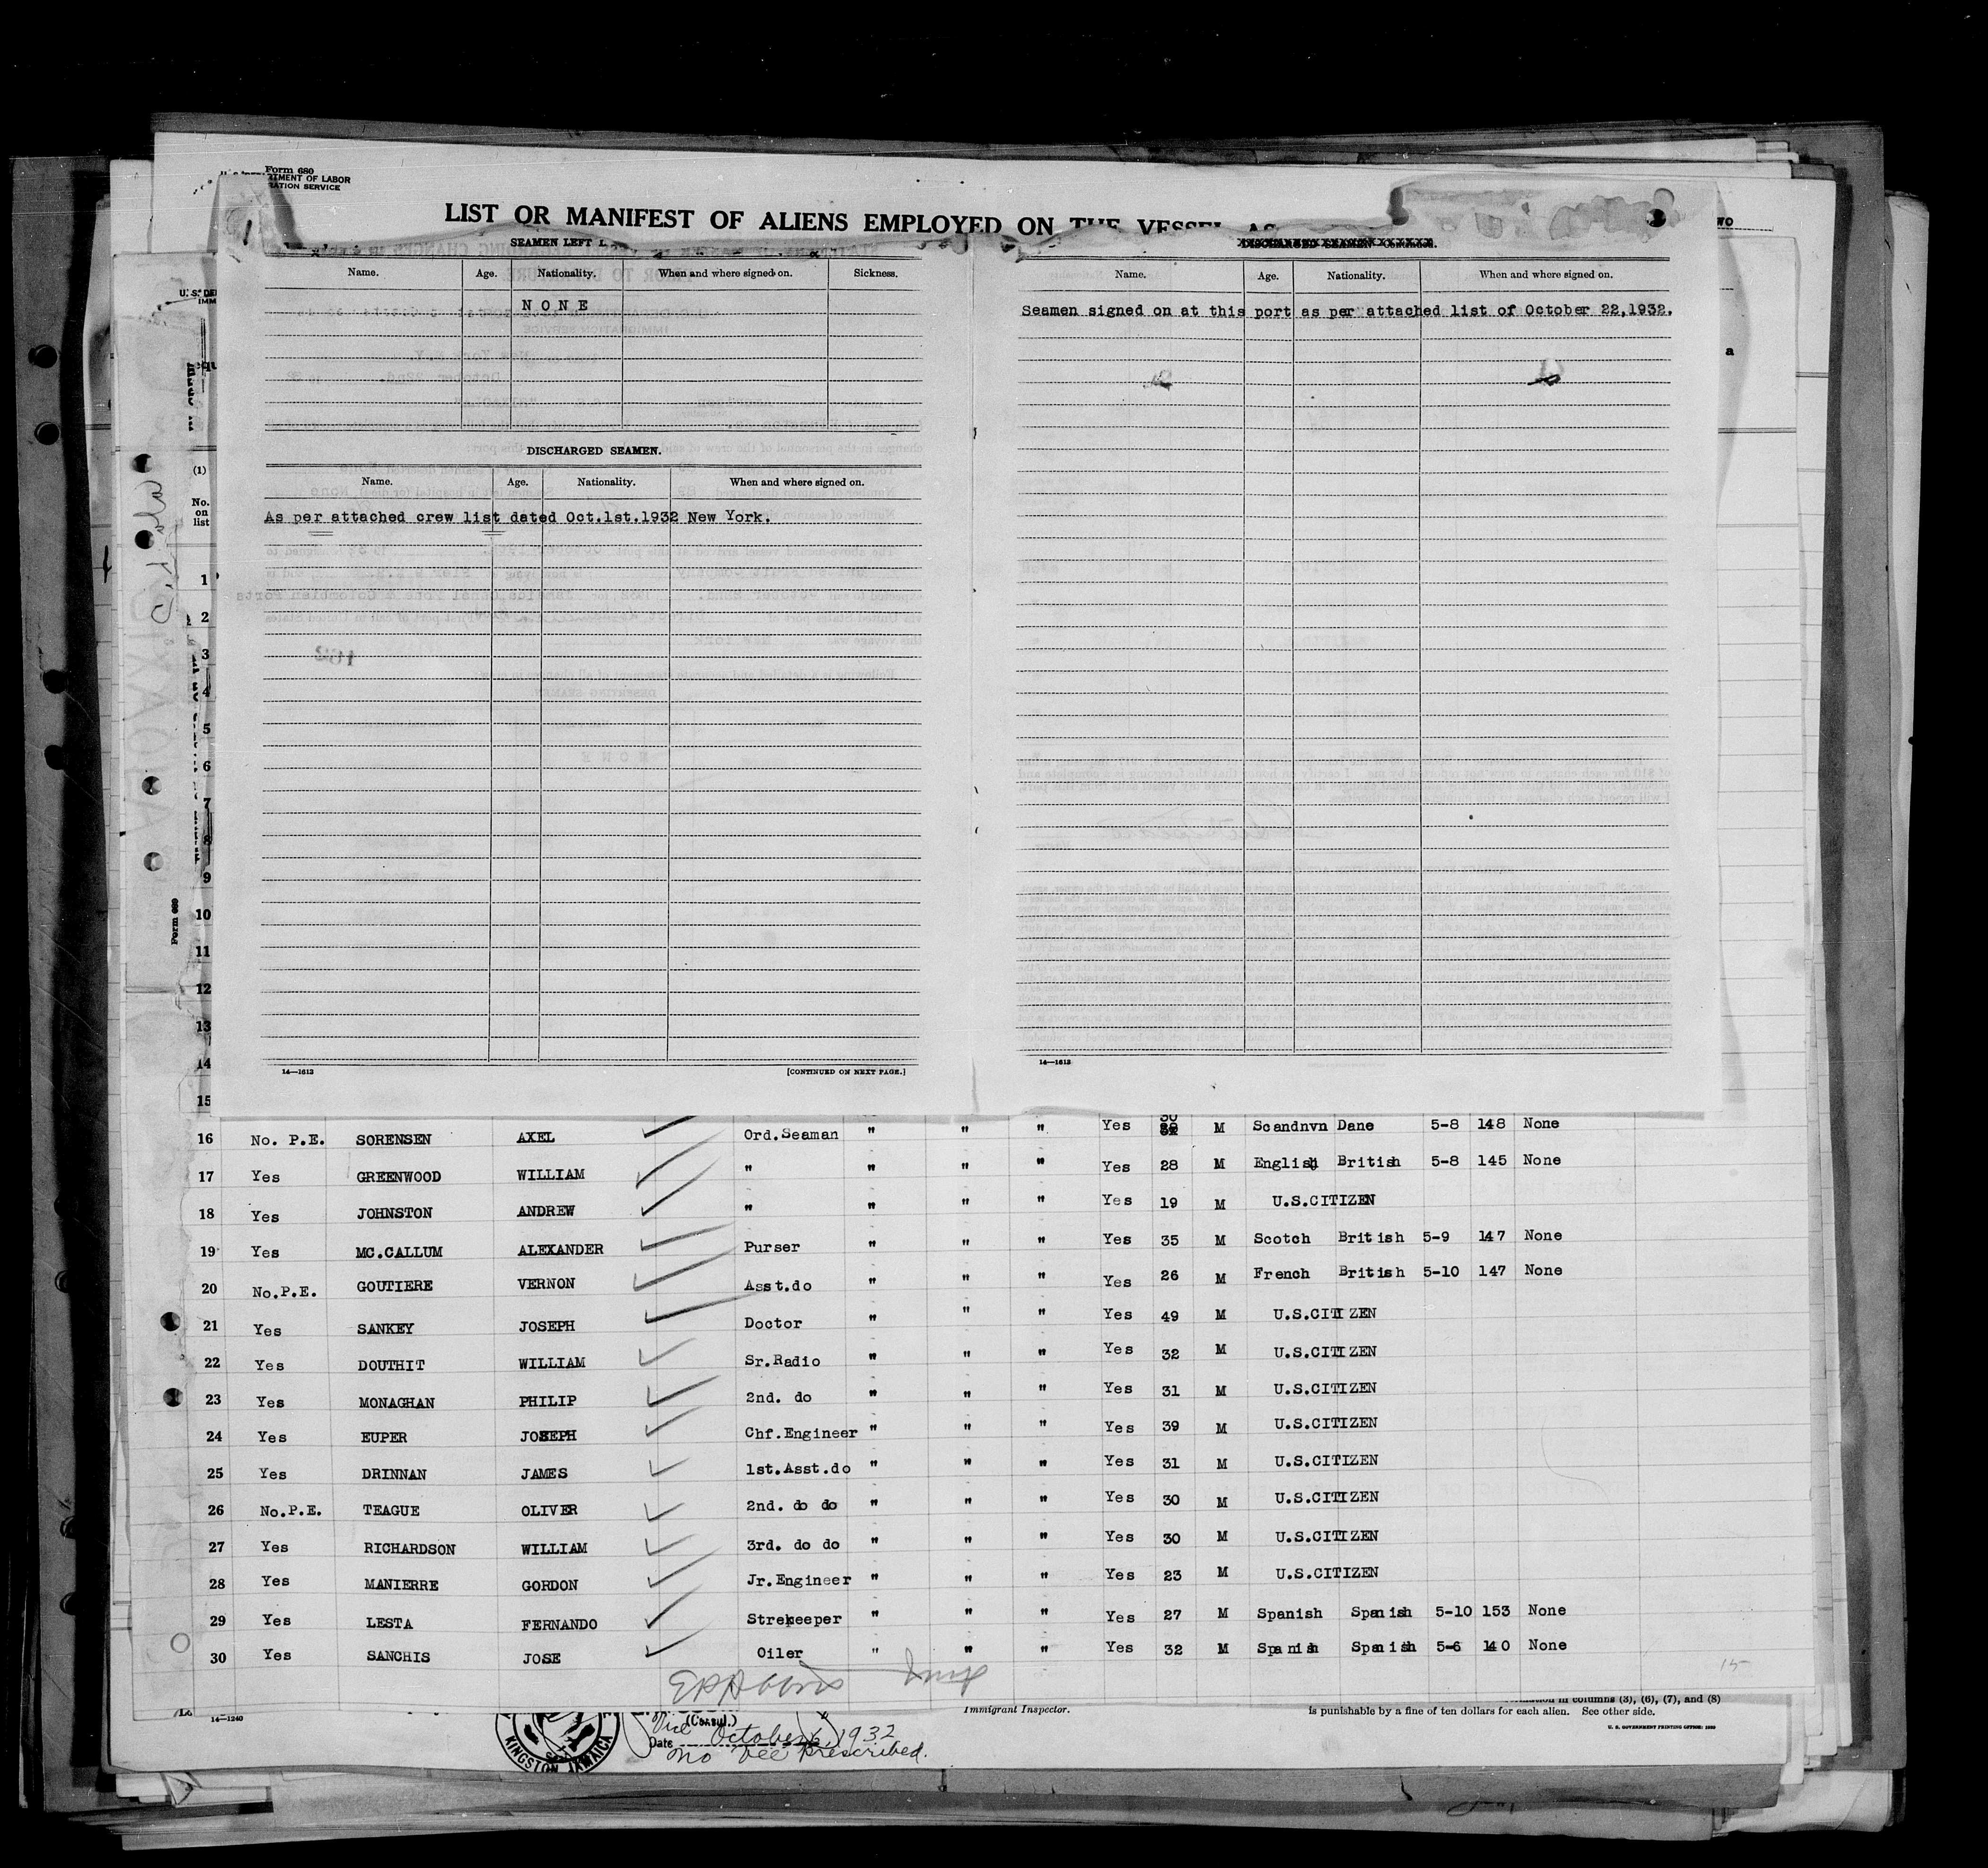 Form 680
TMENT OF LABOR
RATION SERVICE
LIST OR MANIFEST OF ALIENS EMPLOYED ON THE VESSEL AS
SEAMEN LEFT
Name. Age. Nationality. When and where signed on. Sickness.
NONE
DISCHARGED SEAMEN.
Name. Age. Nationality. When and where signed on.
As per attached crew list dated Oct.1st.1932 New York.
14—1613 [CONTINUED ON NEXT PAGE.]
Name. Age. Nationality. When and where signed on.
Seamen signed on at this port as per attached list of October 22,1932.
14—1613
U. S. DE
IMM
(1)
No.
on
list
1
2
3
4
5
6
7
8
9
10
11
12
13
14
15
Form 680
16 No. P.E. SORENSEN AXEL Ord.Seaman " " " Yes 30 M Scandnvn Dane 5-8 148 None
17 Yes GREENWOOD WILLIAM " " " " Yes 28 M English British 5-8 145 None
18 Yes JOHNSTON ANDREW " " " " Yes 19 M U.S.CITIZEN
19 Yes MC.CALLUM ALEXANDER Purser " " " Yes 35 M Scotch British 5-9 147 None
20 No.P.E. GOUTIERE VERNON Asst.do " " " Yes 26 M French British 5-10 147 None
21 Yes SANKEY JOSEPH Doctor " " " Yes 49 M U.S.CITIZEN
22 Yes DOUTHIT WILLIAM Sr.Radio " " " Yes 32 M U.S.CITIZEN
23 Yes MONAGHAN PHILIP 2nd. do " " " Yes 31 M U.S.CITIZEN
24 Yes EUPER JOSEPH Chf.Engineer " " " Yes 39 M U.S.CITIZEN
25 Yes DRINNAN JAMES 1st.Asst.do " " " Yes 31 M U.S.CITIZEN
26 No.P.E. TEAGUE OLIVER 2nd. do do " " " Yes 30 M U.S.CITIZEN
27 Yes RICHARDSON WILLIAM 3rd. do do " " " Yes 30 M U.S.CITIZEN
28 Yes MANIERRE GORDON Jr.Engineer " " " Yes 23 M U.S.CITIZEN
29 Yes LESTA FERNANDO Strekeeper " " " Yes 27 M Spanish Spanish 5-10 153 None
30 Yes SANCHIS JOSE Oiler " " " Yes 32 M Spanish Spanish 5-6 140 None
15
14—1240
Immigrant Inspector.
in columns (3), (6), (7), and (8)
is punishable by a fine of ten dollars for each alien. See other side.
U. S. GOVERNMENT PRINTING OFFICE: 1930
(Consul.)
Vice
Date October 6, 1932
No fee prescribed.
KINGSTON JAMAICA